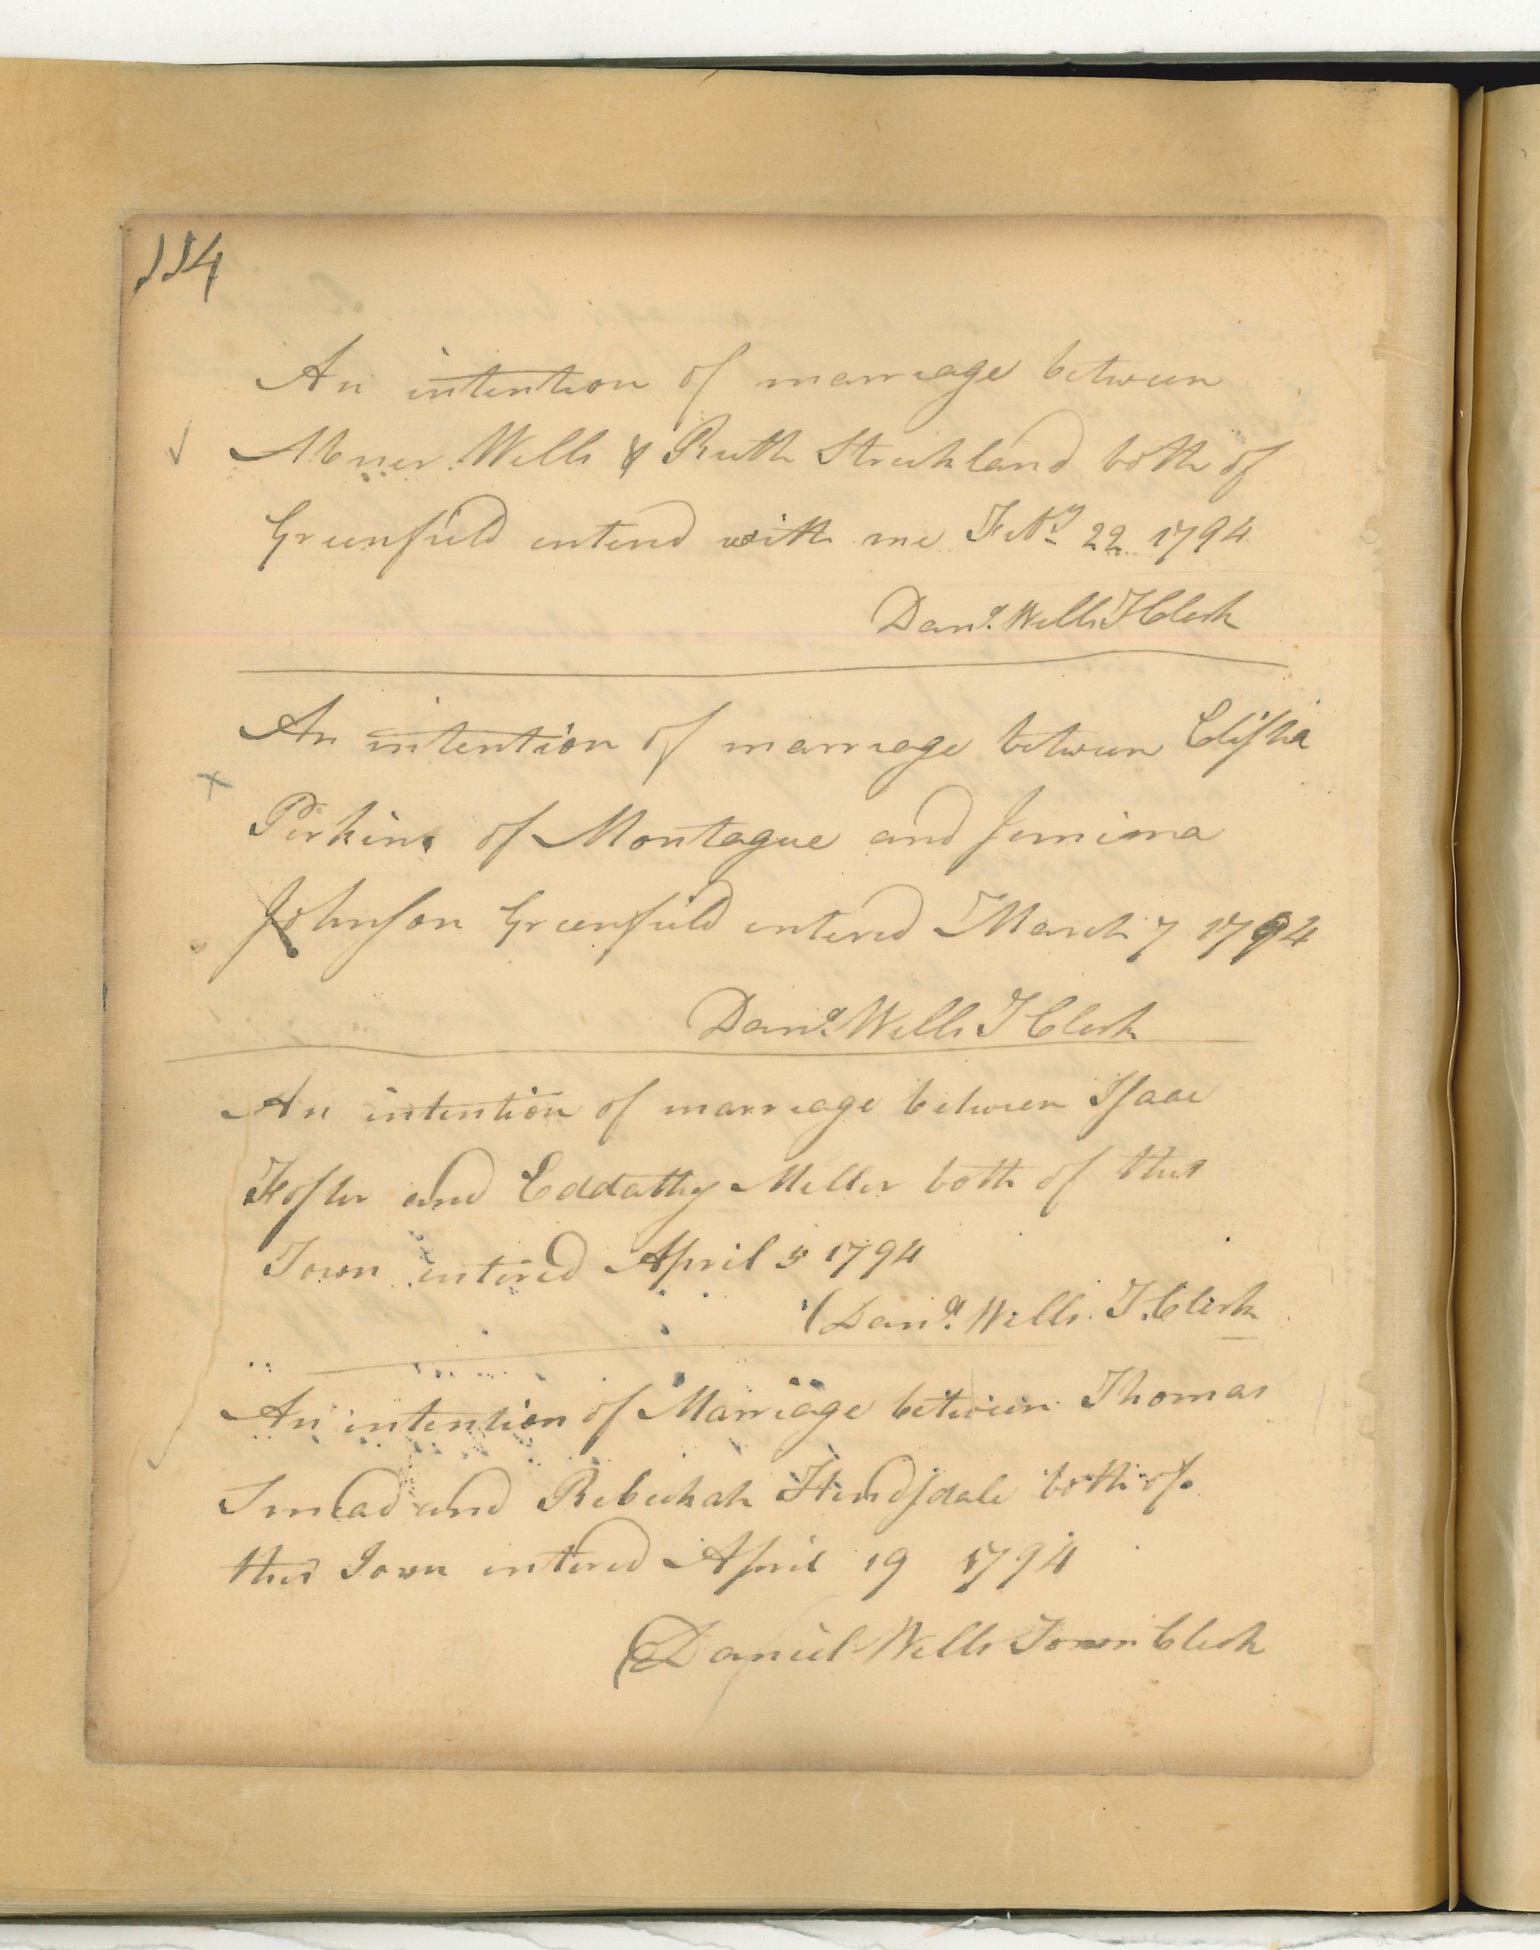 114
An intention of marriage between
Abner Wells & Ruth Strickland both of
Greenfield entered with me Feby 22 1794
Danl. Wells T Clerk
An intention of marriage between Elisha
Perkins of Montague and Jemima
Johnson Greenfield entered March 7 1794
Danl. Wells T Clerk
An intention of marriage between Isaac
Foster and Eddathy Miller both of this
Town entered April 5 1794
Danl. Wells. T. Clerk
An intention of Marriage between Thomas
Smead and Rebeckah Hindsdale both of
this Town entered April 19 1794
Daniel Wells Town Clerk